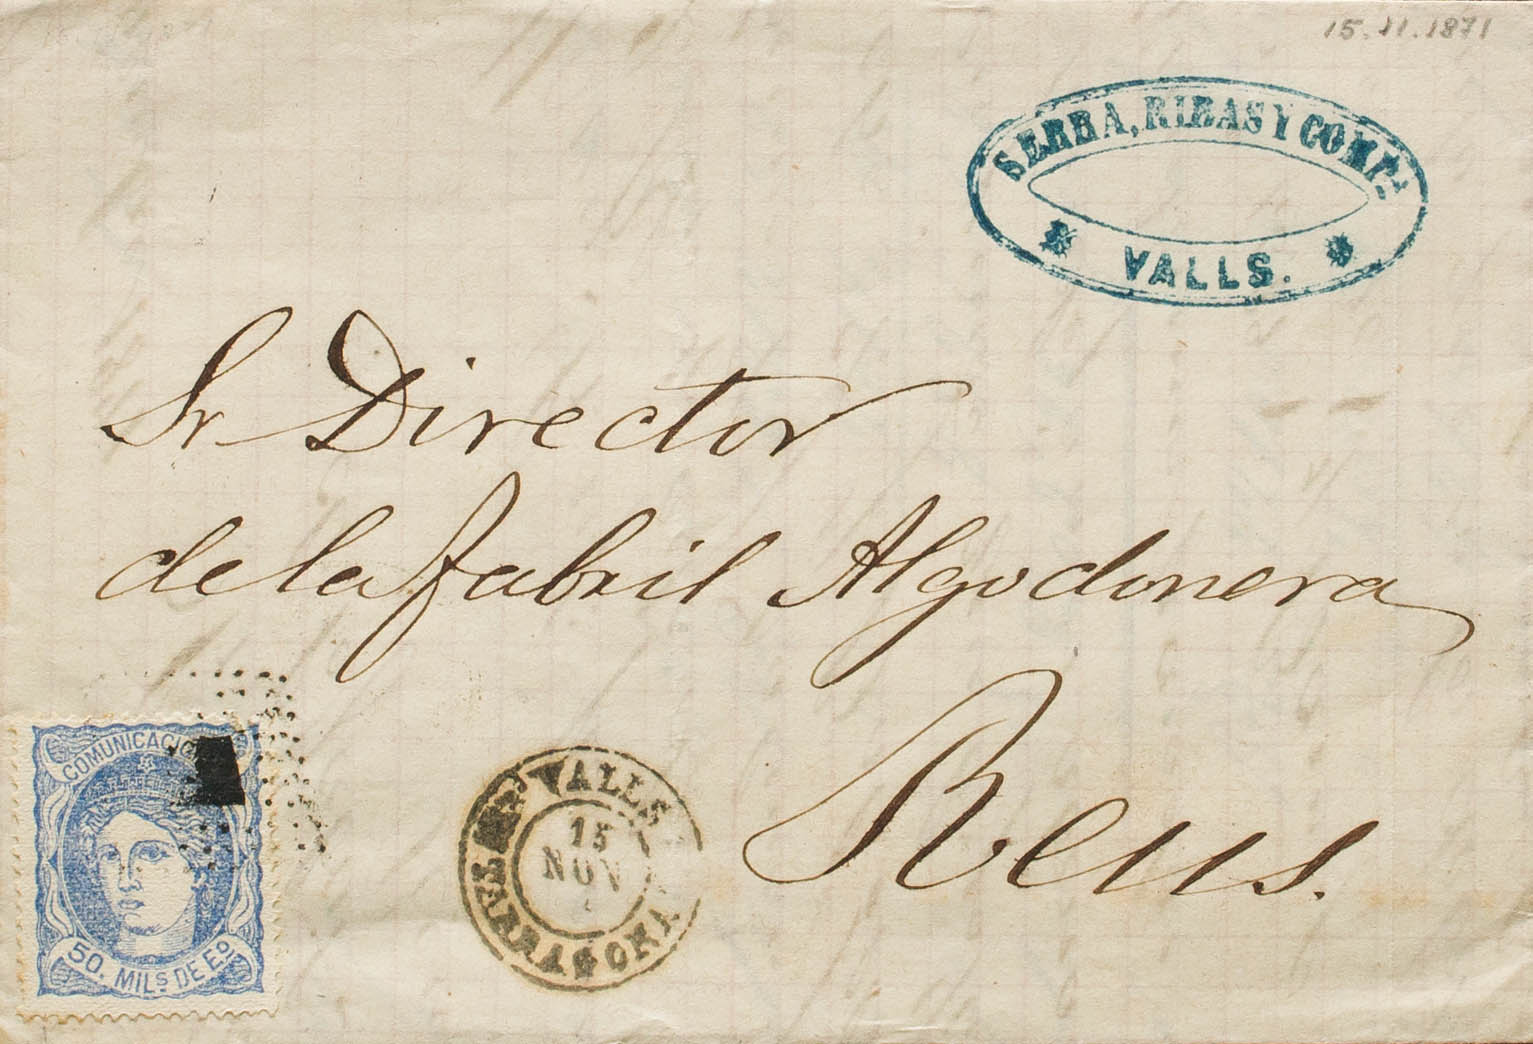 15.11.1871
SERRA, RIBAS Y COMP.ª
VALLS.
Sr Director
de la fabril Algodonera
Reus.
COMUNICACIO
50. MILs DE Eo
VALLS
15
NOV
TARRAGONA